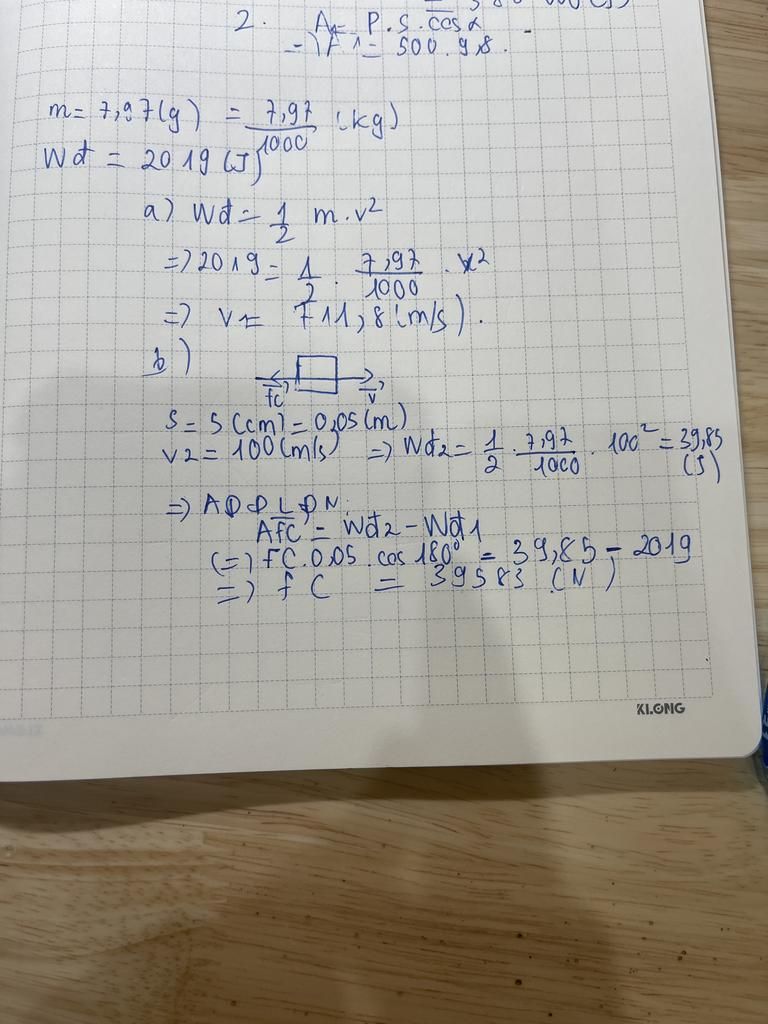 2. A = P.S.cosα
=) A1 = 500.9,8.
m = 7,97(g) = 7,97/1000 (kg)
Wđ = 2019(J)
a) Wđ = 1/2 m.v²
=) 2019 = 1/2 . 7,97/1000 . v²
=) v1 = 711,8(m/s).
b)
fC v
S = 5(cm) = 0,05(m)
v2 = 100(m/s) =) Wđ2 = 1/2 . 7,97/1000 . 100² = 39,85
(J)
=) ADĐLĐN:
AfC = Wđ2 - Wđ1
(=) FC.0,05.cos180° = 39,85 - 2019
=) fC = 39583 (N)
KLONG